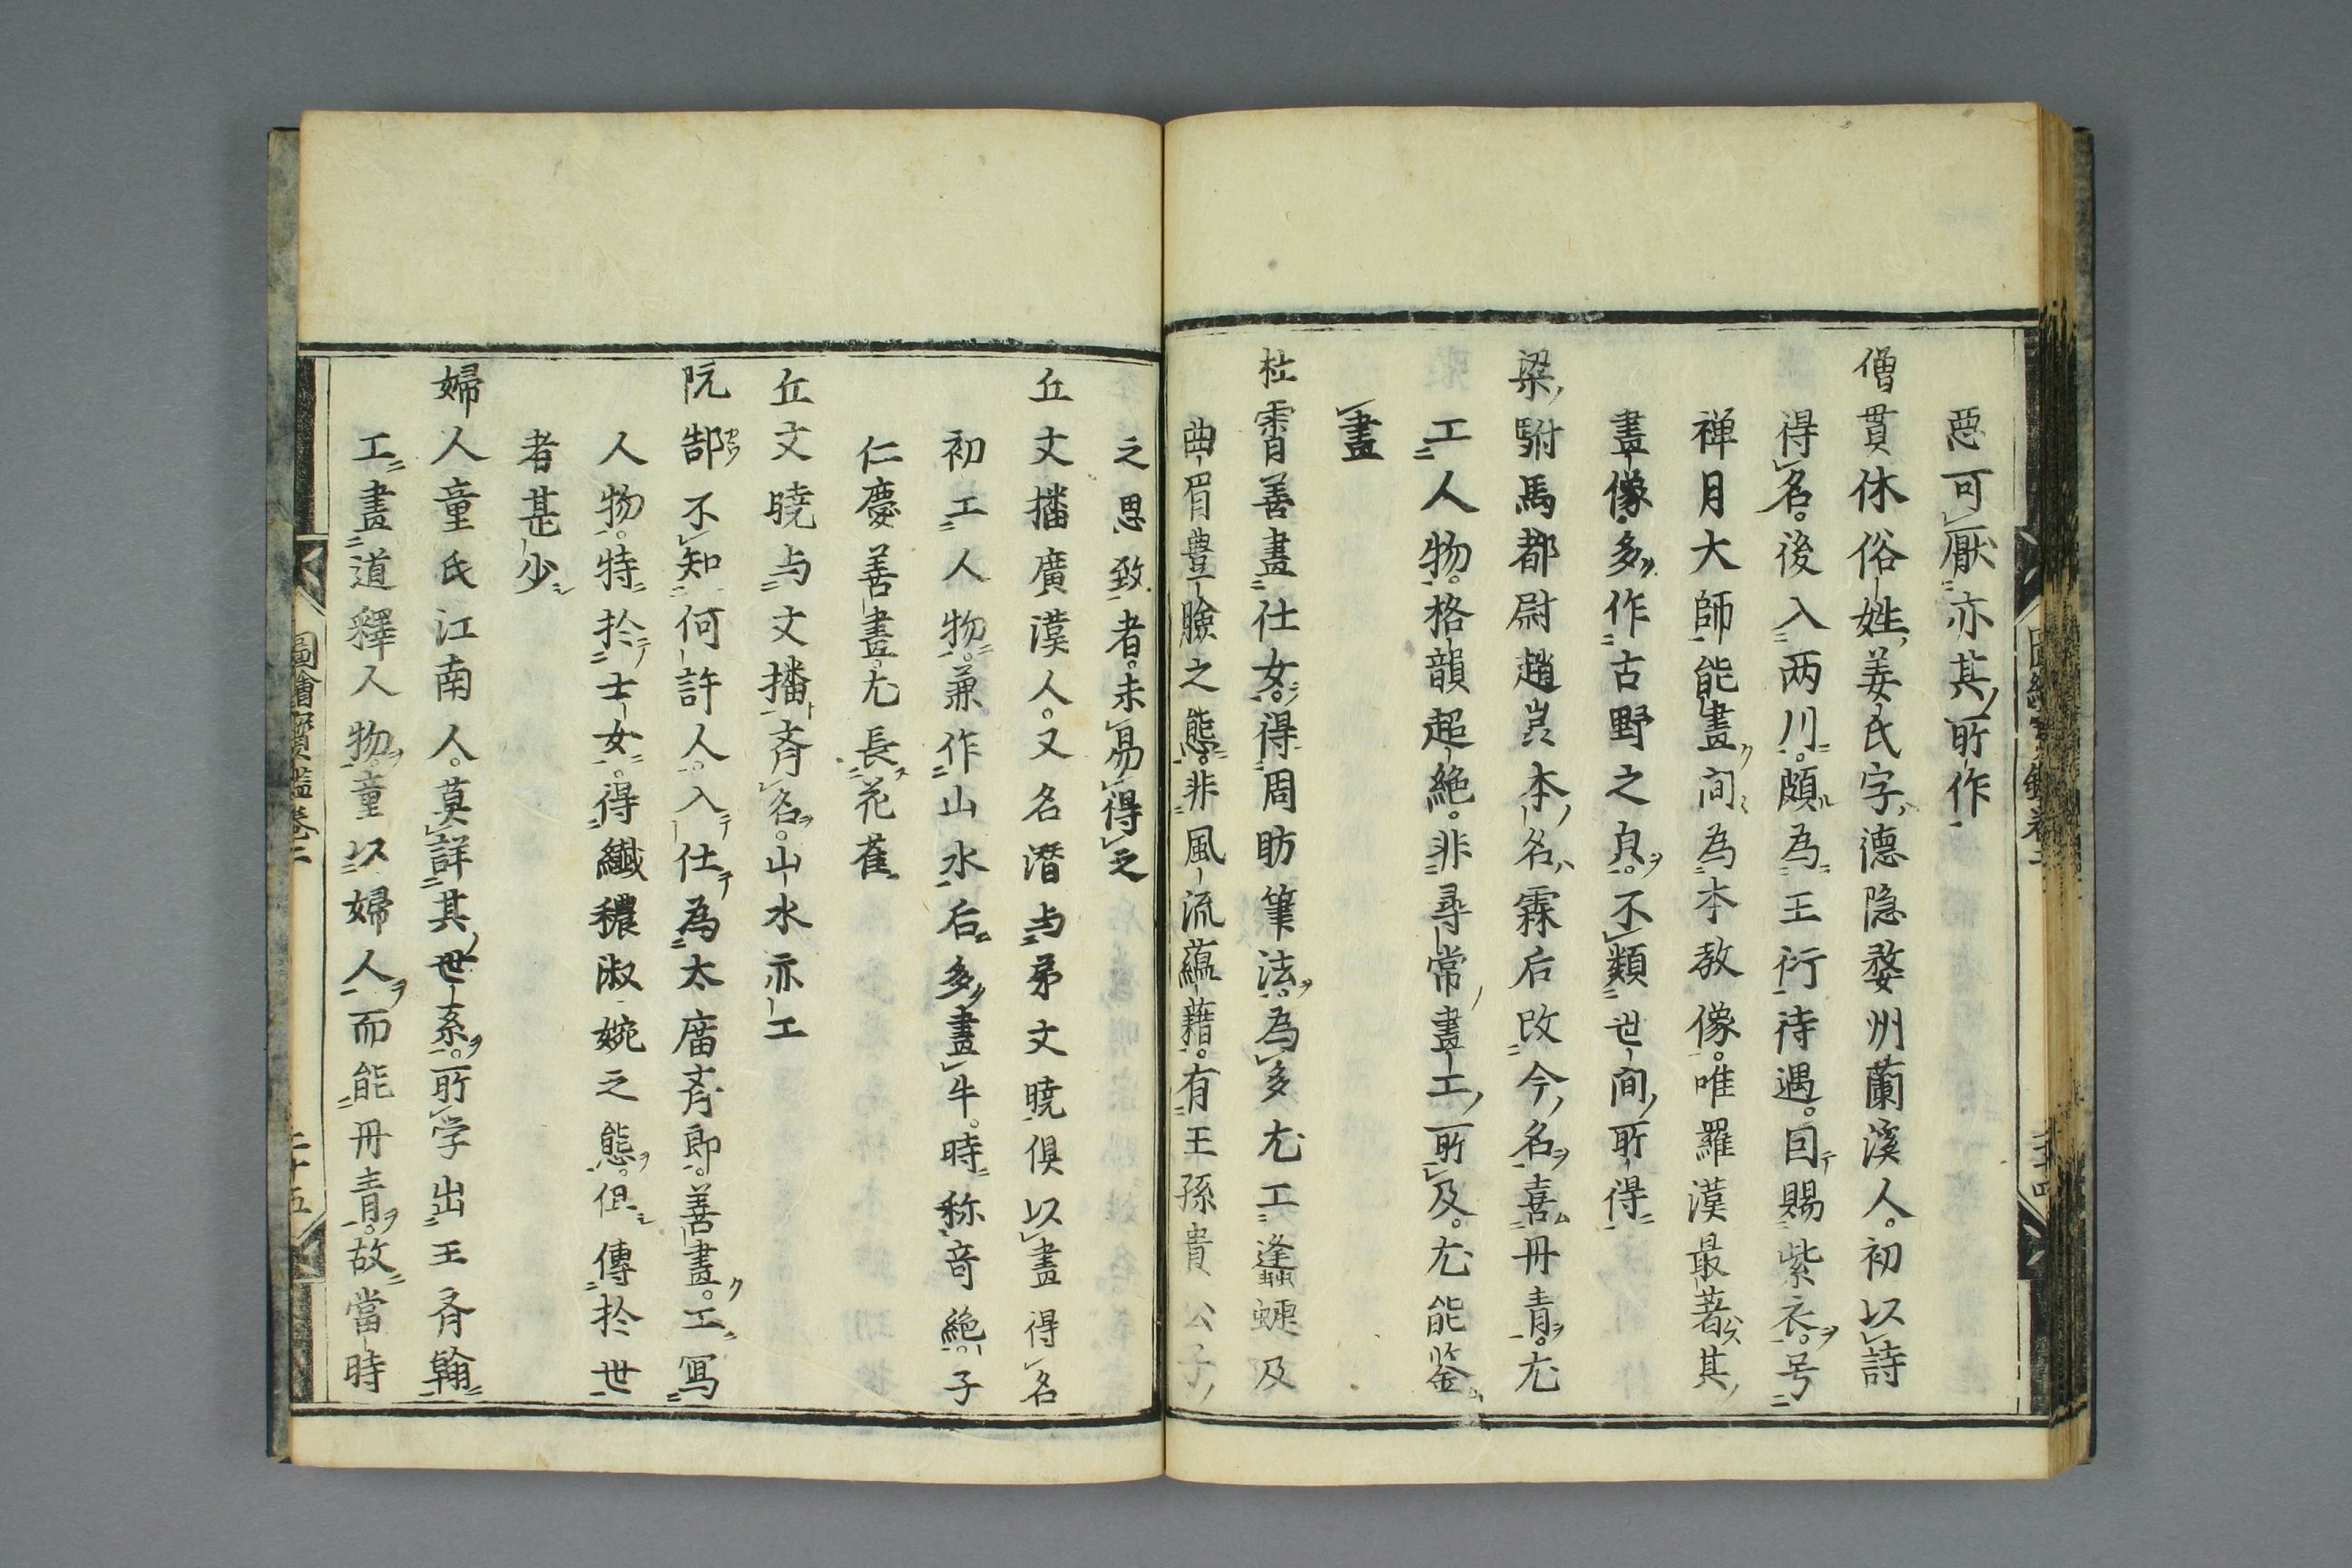 惡可厭亦其所作
僧貫休俗姓姜氏字德隐婺州蘭溪人。初以詩
得名。後入両川。頗為王衍待遇。囙賜紫衣。号
禅月大師能畫間為本教像。唯羅漢最著其
畫像。多作古野之皃。不類世間所得
梁駙馬都尉趙嵓本名霖后改今名喜丹青。尤
工人物。格韻超絶。非尋常畫工所及。尤能鉴
畫
杜霄善畫仕女。得周昉筆法。為多尤工蜂蝶及
曲眉豊臉之態。非風流蘊藉。有王孫貴公子
之思致者。未易得之
丘文播廣漢人。又名潜与弟文曉俱以畫得名
初工人物。兼作山水后多畫牛。時称竒絶子
仁慶善畫。尤長花雀
丘文曉与文播斉名。山水亦工
阮郜不知何許人。入仕為太庿斉郎。善畫。工冩
人物。特於士女。得纎穠淑婉之態。但傳於世
者甚少
婦人童氏江南人。莫詳其世系。所学出王斉翰
工畫道釋人物。童以婦人而能丹青。故當時
圖繪寳鑑巻二
二十五